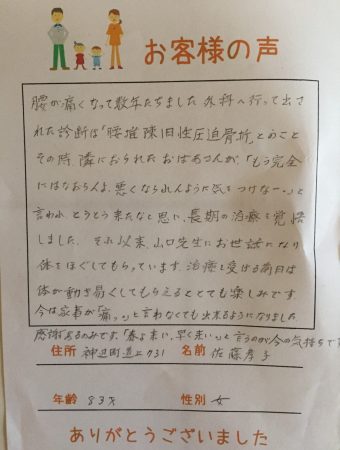 お客様の声
腰が痛くなって数年たちました 外科へ行って出さ
れた診断は「腰椎陳旧性圧迫骨折」とのこと
その時、隣におられたおばあさんが、「もう完全
にはなおらんよ、悪くなられんように気をつけなー。」と
言われ、とうとう来たなと思い、長期の治療を覚悟
しました。それ以来、山口先生にお世話になり
体をほぐしてもらっています。治療を受ける前日は
体が動き易くしてもらえるととても楽しみです
今は家事が「痛っ。」と言わなくても出来るようになりました
感謝あるのみです。「春よ来い、早く来い」と言うのが今の気持ちです
住所 神辺町道上931 名前 佐藤孝子
年齢 83才 性別 女
ありがとうございました